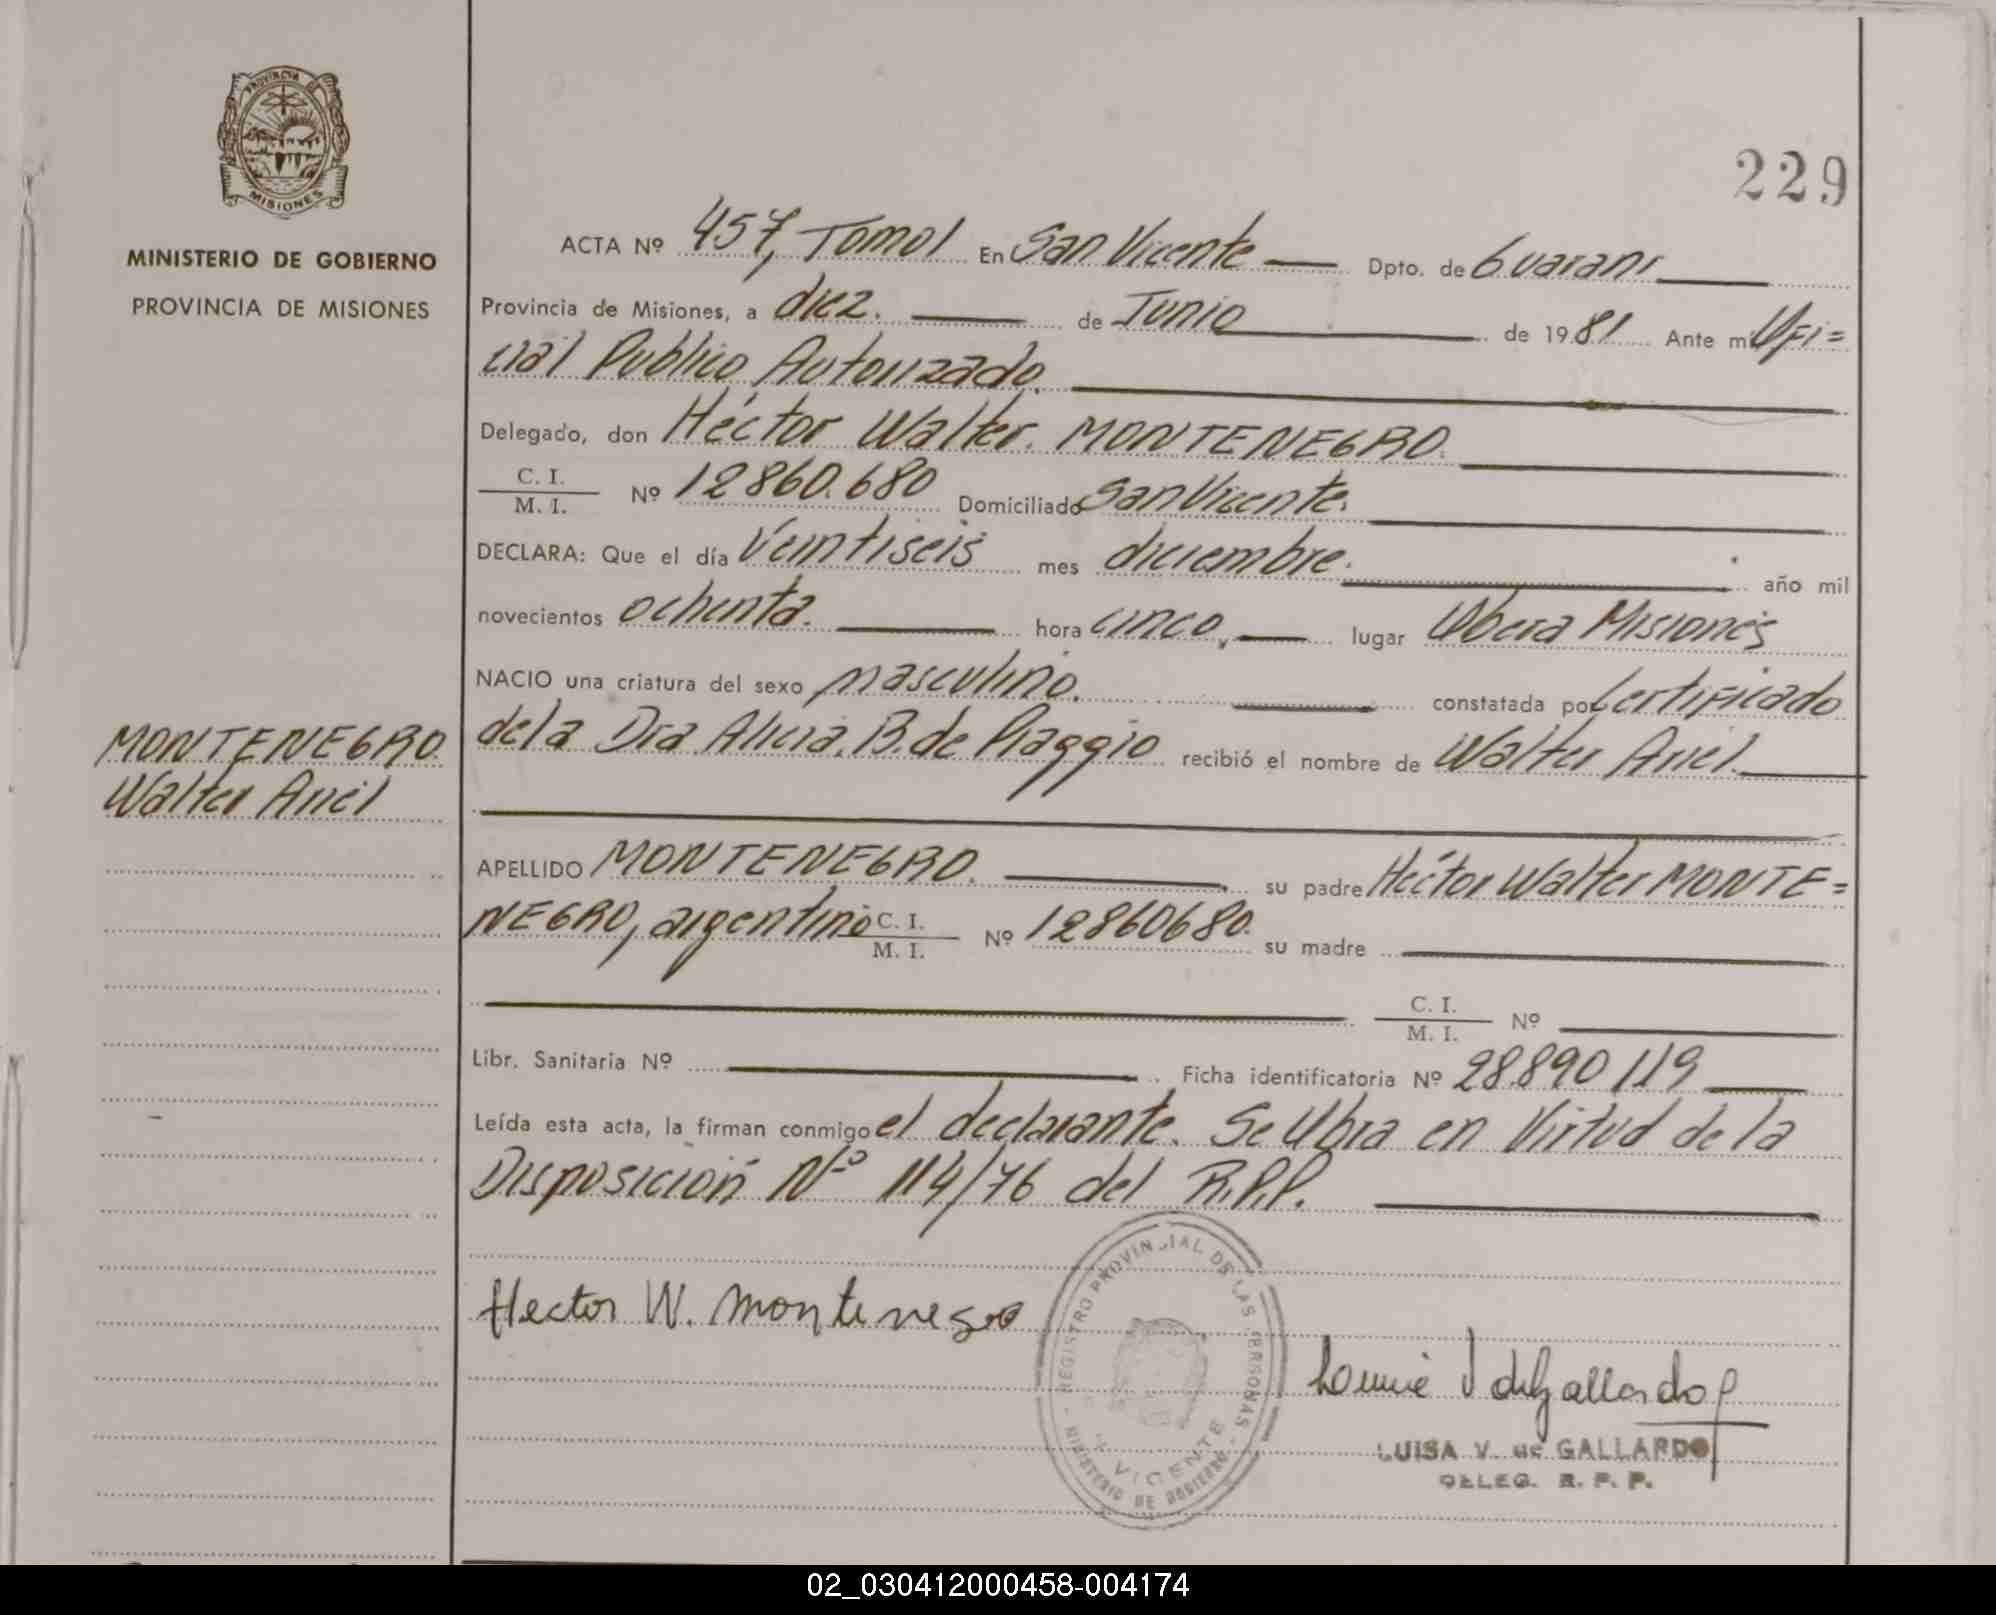 PROVINCIA DE
MISIONES
MINISTERIO DE GOBIERNO
PROVINCIA DE MISIONES
229
ACTA Nº 457, Tomo I En San Vicente Dpto. de Guaraní
Provincia de Misiones, a diez. de Junio de 1981 Ante mi Ofi=
cial Publico Autorizado.
Delegado, don Héctor Walter. MONTENEGRO.
C. I.
M. I. Nº 12860.680 Domiciliado San Vicente.
DECLARA: Que el día Veintiseis mes diciembre. año mil
novecientos ochenta. hora cinco, lugar Obera Misiones
NACIO una criatura del sexo masculino. constatada por Certificado
de la Dra Alicia. B. de Piaggio recibió el nombre de Walter Ariel.
MONTENEGRO.
Walter Ariel
APELLIDO MONTENEGRO. su padre Héctor Walter MONTE=
NEGRO, argentino C. I.
M. I. Nº 12860680. su madre
C. I.
M. I. Nº
Libr. Sanitaria Nº Ficha identificatoria Nº 28.890 119
Leída esta acta, la firman conmigo el declarante. Se Obra en Virtud de la
Disposición Nº 114/76 del R.P.P.
Hector W. Montenegro
REGISTRO PROVINCIAL DE LAS PERSONAS
MINISTERIO DE GOBIERNO
VICENTE
V de Gallardo
LUISA V. de GALLARDO
DELEG. R. P. P.
02_030412000458-004174